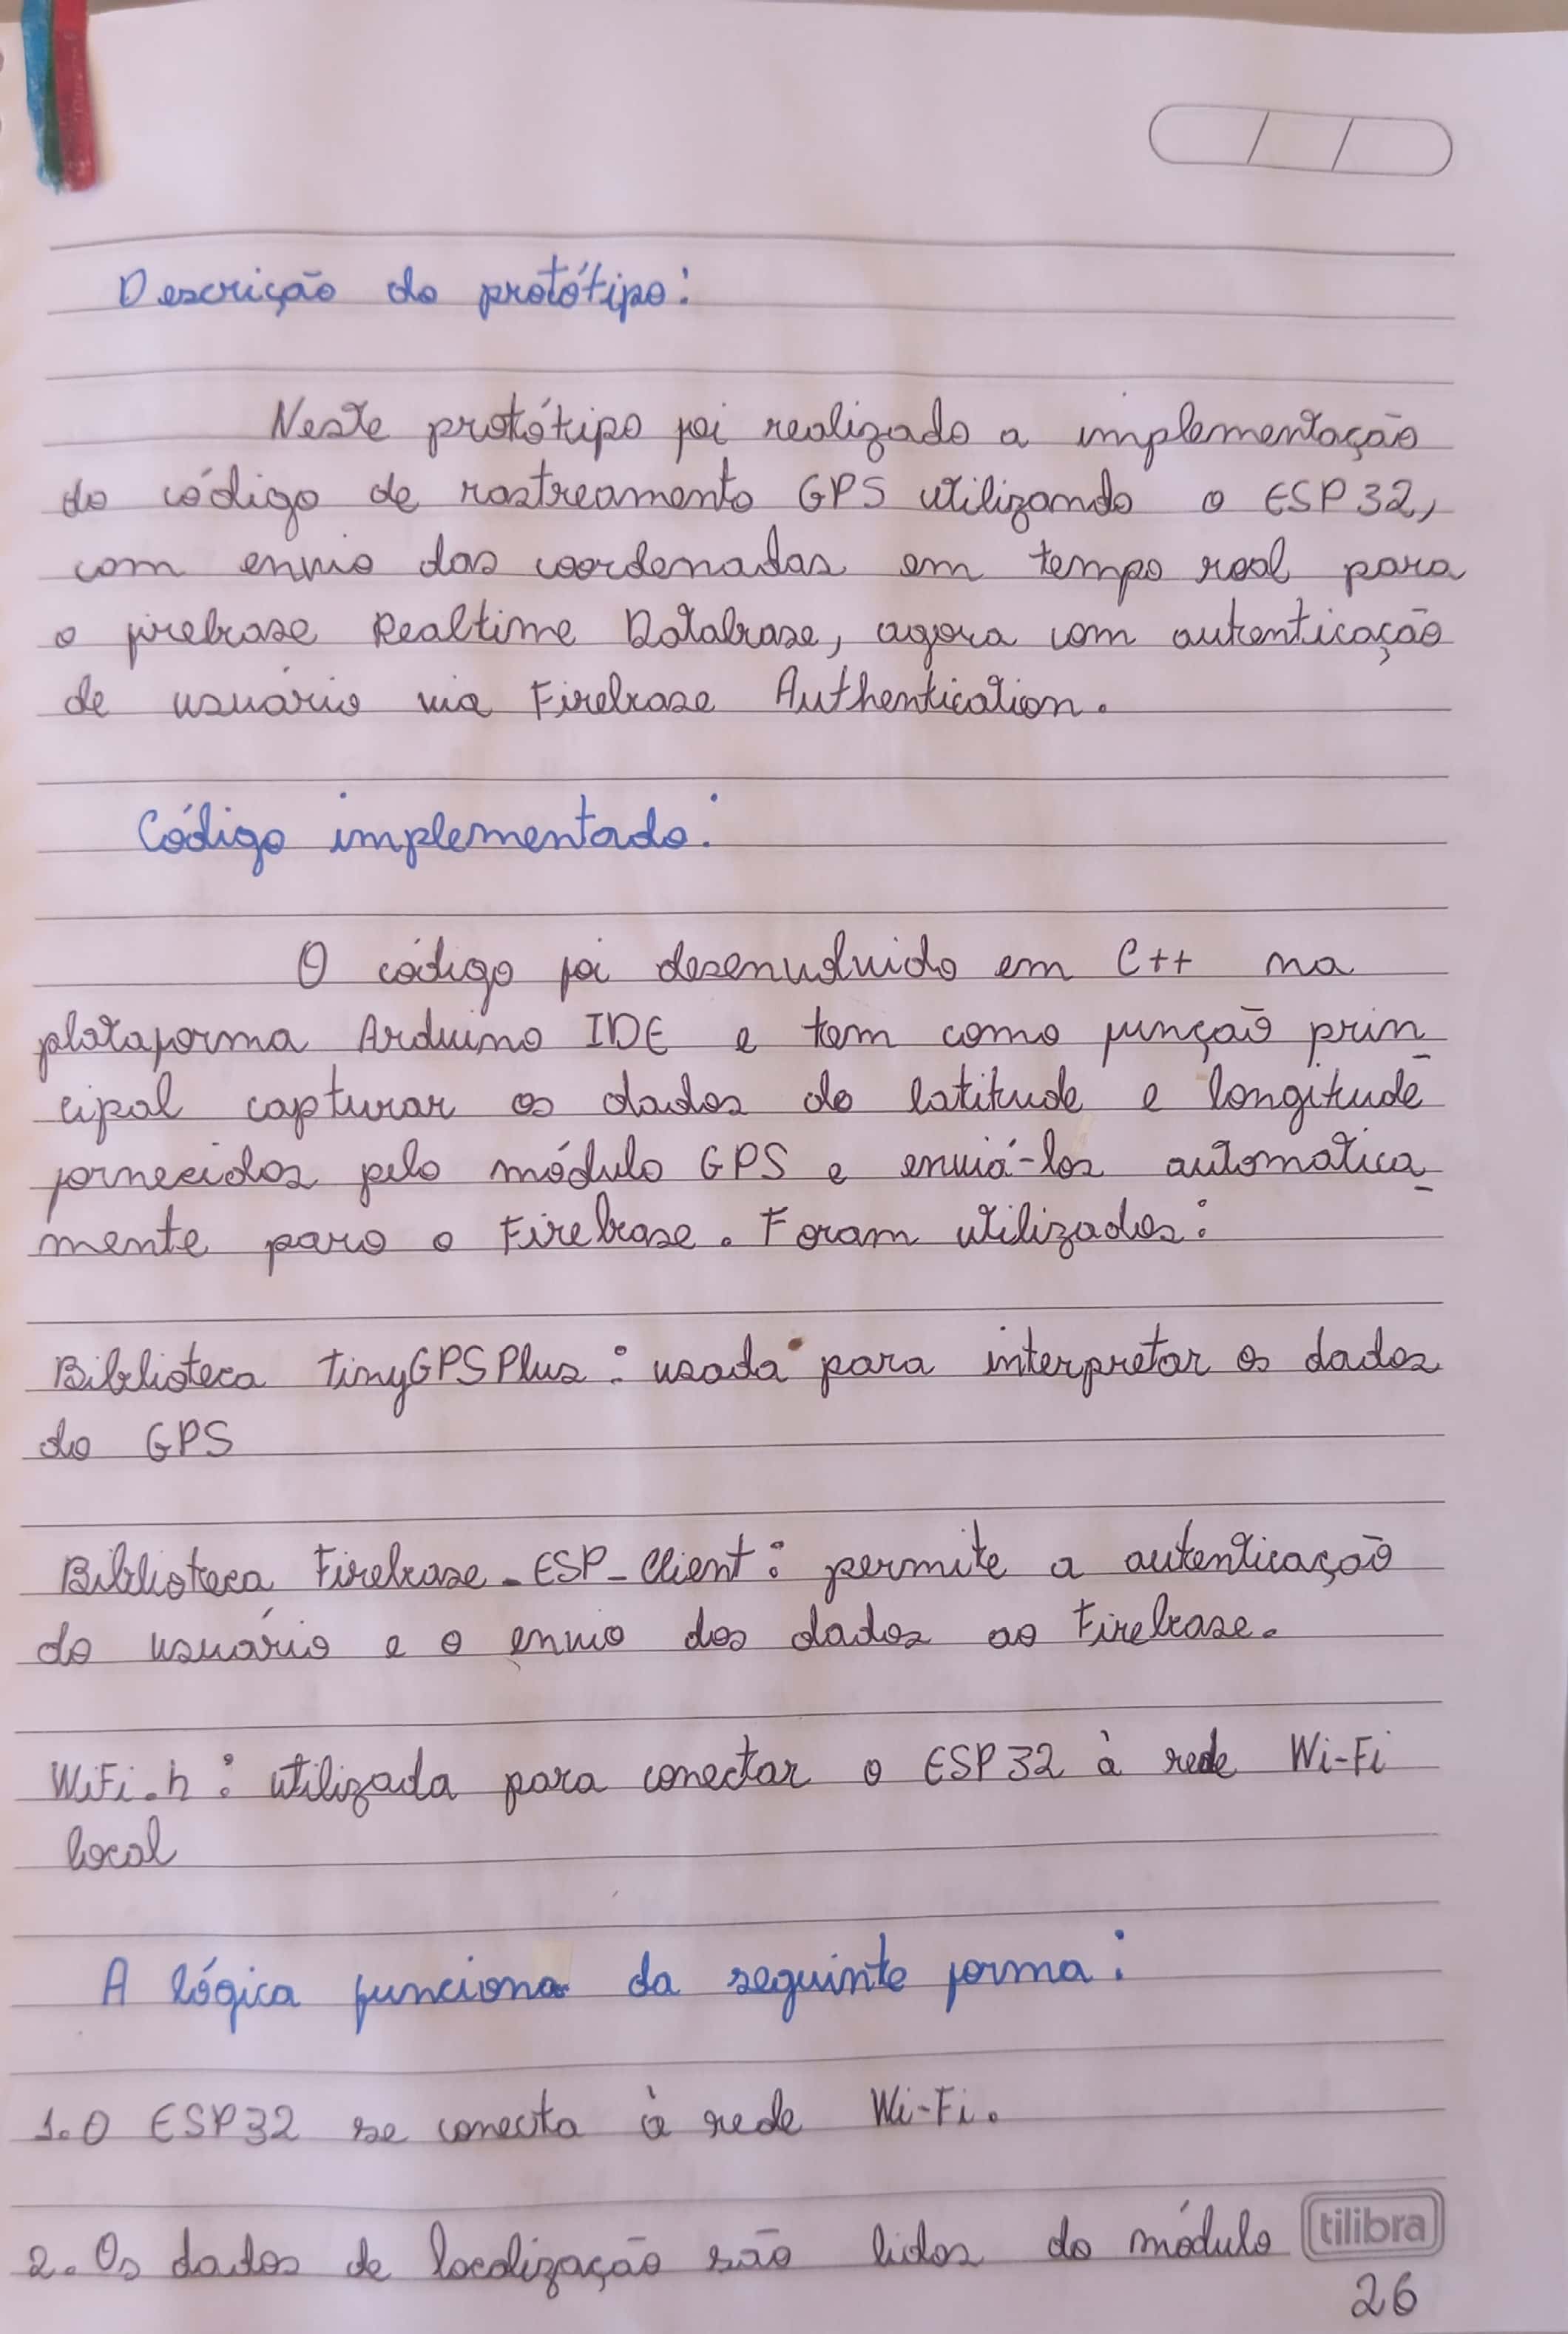 Descrição do protótipo:
Neste protótipo foi realizado a implementação
do código de rastreamento GPS utilizando o ESP32,
com envio das coordenadas em tempo real para
o firebase Realtime Database, agora com autenticação
de usuário via Firebase Authentication.
Código implementado:
O código foi desenvolvido em C++ na
plataforma Arduino IDE e tem como função prin_
cipal capturar os dados de latitude e longitude
fornecidos pelo módulo GPS e enviá-los automatica_
mente para o Firebase. Foram utilizados:
Biblioteca TinyGPSPlus: usada para interpretar os dados
do GPS
Biblioteca Firebase_ESP_Client: permite a autenticação
do usuário e o envio dos dados ao Firebase.
WiFi.h: utilizada para conectar o ESP32 à rede Wi-Fi
local
A lógica funciona da seguinte forma:
1. O ESP32 se conecta à rede Wi-Fi.
2. Os dados de localização são lidos do módulo
tilibra
26